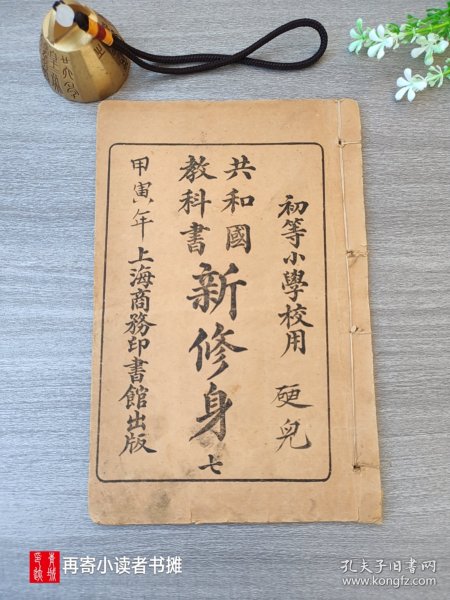 初等小學校用
硬兒
共和國
教科書
新修身
七
甲寅年上海商務印書館出版
再寄小读者书摊
孔夫子旧书网
www.kongfz.com